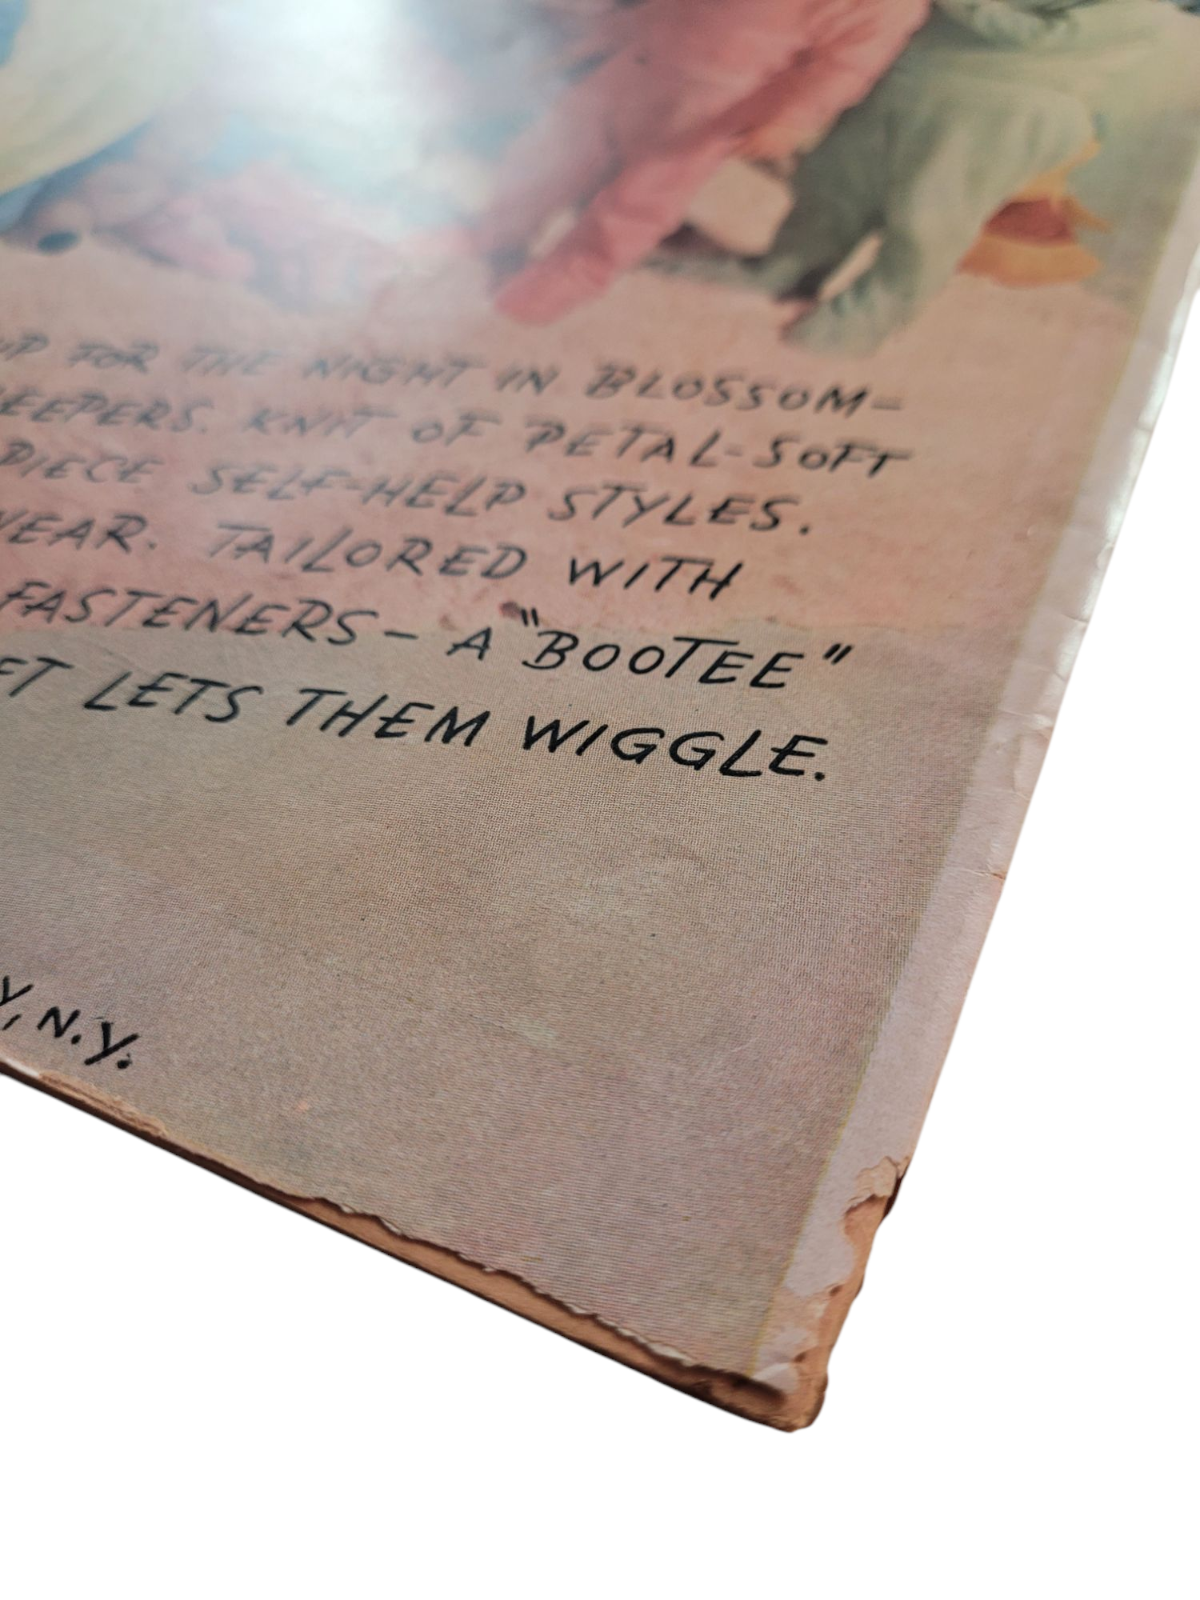 UP FOR THE NIGHT IN BLOSSOM-
EEPERS. KNIT OF PETAL-SOFT
PIECE SELF-HELP STYLES.
WEAR. TAILORED WITH
FASTENERS - A "BOOTEE"
ET LETS THEM WIGGLE.
Y, N.Y.